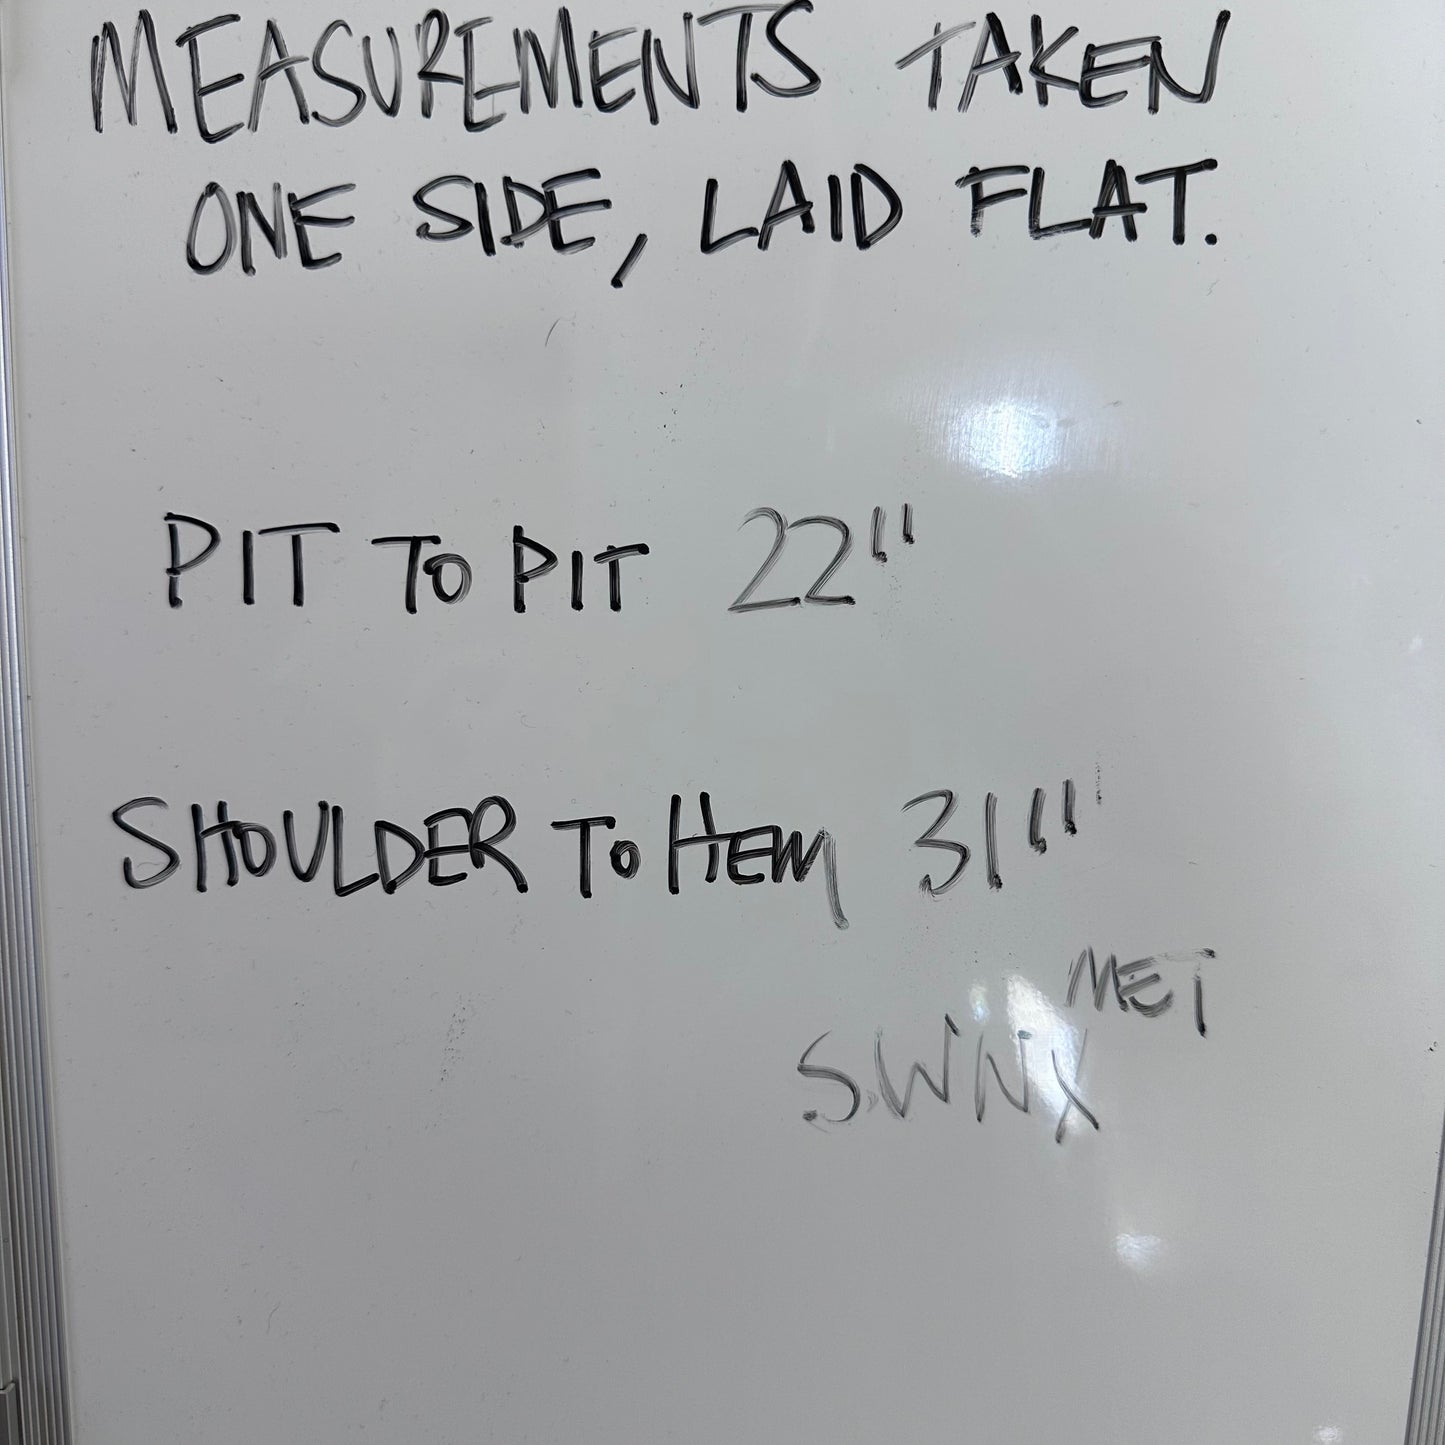 MEASUREMENTS TAKEN
ONE SIDE, LAID FLAT.
PIT TO PIT 22"
SHOULDER TO HEM 31"
MET
S.WNX